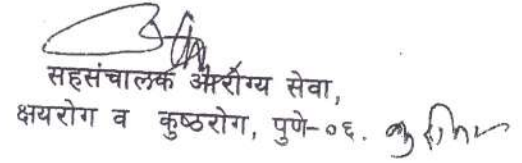 सहसंचालक आरोग्य सेवा,
क्षयरोग व कुष्ठरोग, पुणे-०६.